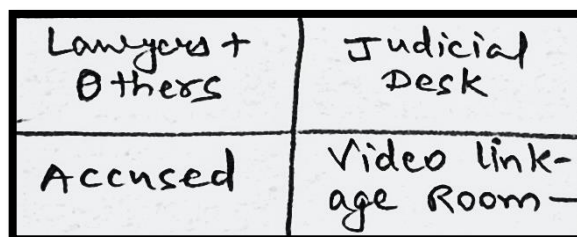 Lawyers +
Others
Judicial
Desk
Accused
Video link-
age Room-